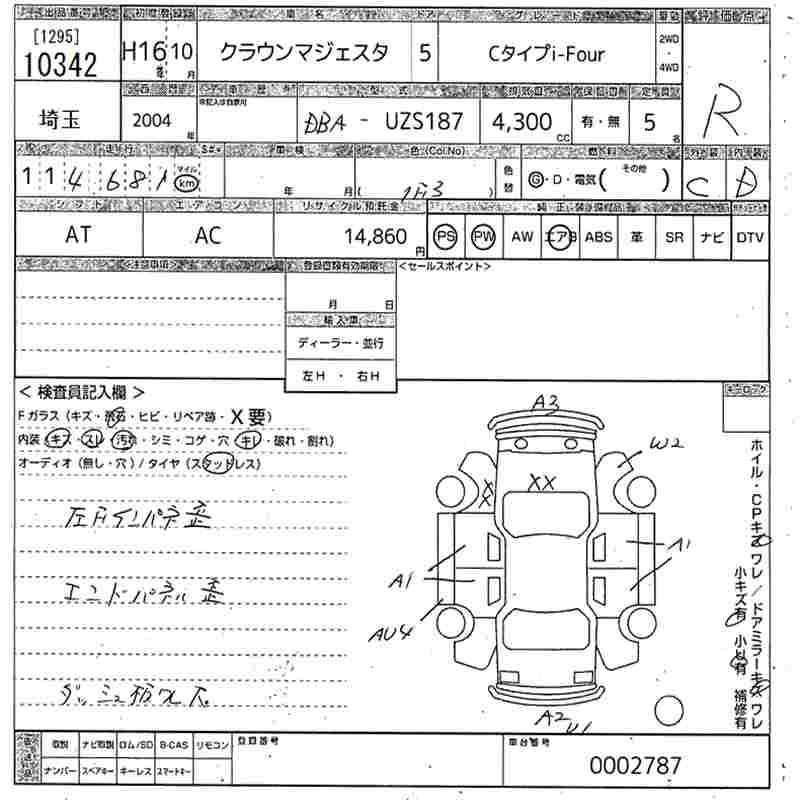 出品番号 初度登録 車名 ドア グレード 駆動 評価点
[1295]
10342 H16年10月 クラウンマジェスタ 5 Cタイプi-Four 2WD・4WD R
西暦 車歴 型式 排気量 定員
埼玉 2004年 未記入は自家用 DBA - UZS187 4,300cc 有・無 5名
走行 車検 色(Col.No) 燃料 外装 内装
マイル km 年 月 色替 G・D・電気( その他 ) C D
シフト エアコン リサイクル預託金 純正装備品
AT AC 14,860円 PS PW AW エアB ABS 革 SR ナビ DTV
<注意事項> 登録書類有効期限 <セールスポイント>
月 日
輸入車
ディーラー・並行
左H ・ 右H
< 検査員記入欄 >
Fガラス(キズ・飛石・ヒビ・リペア跡・X要)
内装(キズ・スレ・汚れ・シミ・コゲ・穴・キレ・破れ・割れ)
オーディオ(無し・穴)/タイヤ(スタッドレス)
エンドパネル歪
キーロック
A3
W2
XX
X
X
A1
A1
AU4
A2
U1
ホイル・CPキズ ワレ/ドアミラーキズ ワレ
小キズ有 小凹有 補修有
取説 ナビ取説 ロム/SD B-CAS リモコン 登録番号 車台番号
ナンバー スペアキー キーレス スマートキー 0002787